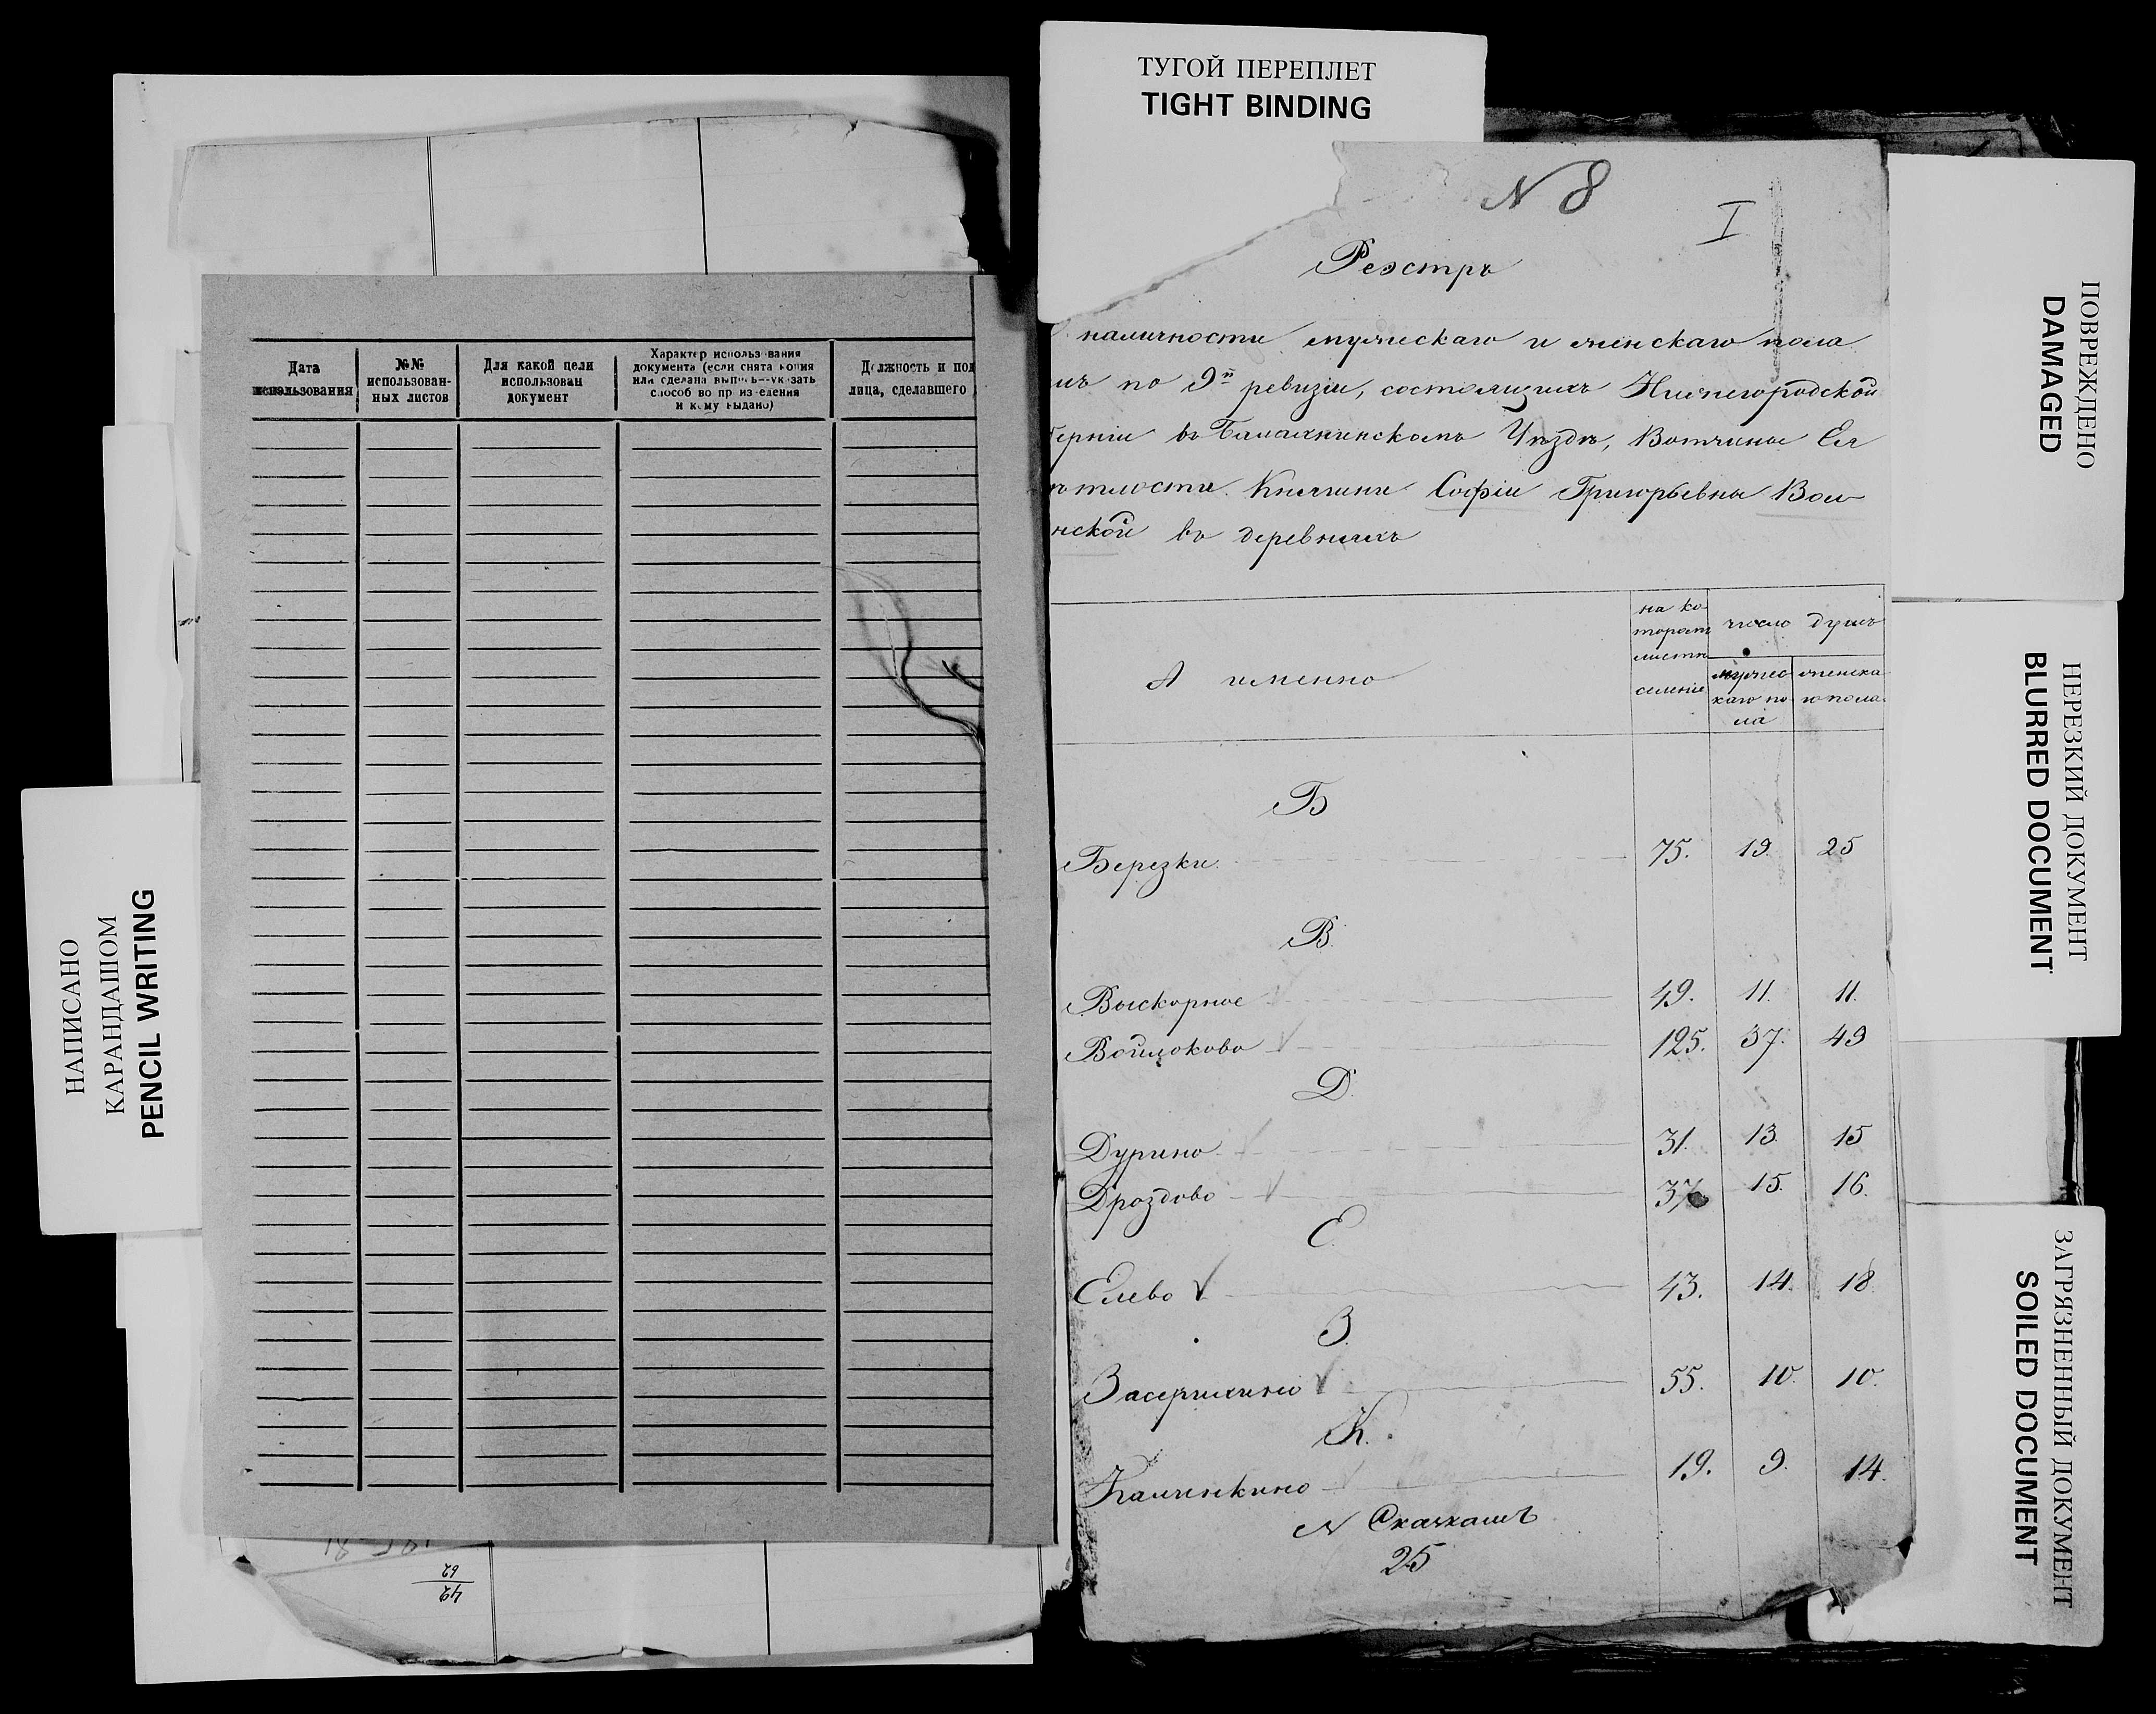 ТУГОЙ ПЕРЕПЛЕТ
TIGHT BINDING
НАПИСАНО
КАРАНДАШОМ
PENCIL WRITING
Дата использования
№№ использован-
ных листов
Для какой цели
использован
документ
Характер использования
документа (если снята копия
или сделана выпись—указать
способ воспр из едения
и кому выдано)
Должность и под
лица, сделавшего
62
42
N 8
I
Реэстръ
наличности мужескаго и женскаго пола
по 9й ревизіи, состоящихъ Нижегородской
берніи въ Балахнинскомъ Уѣздѣ, Вотчины Ея
ѣтлости Княгини Софіи Григорьевны Вол-
нской въ деревняхъ
А именно
на ко-
торомъ
листѣ
селеніе
число душъ
мужес
каго по
ла
женска
го пола
Б
Березки 75. 19. 25
В.
Выскорное 49. 11. 11.
Войлоково 125. 37. 49
Д.
Дурино 31. 13. 15
Дроздово 37 15. 16.
Е
Елево 43. 14. 18
З.
Засерихино 55. 10. 10.
К.
Калинкино 19. 9. 14.
N
25
ПОВРЕЖДЕНО
DAMAGED
НЕРЕЗКИЙ ДОКУМЕНТ
BLURRED DOCUMENT
ЗАГРЯЗНЕННЫЙ ДОКУМЕНТ
SOILED DOCUMENT